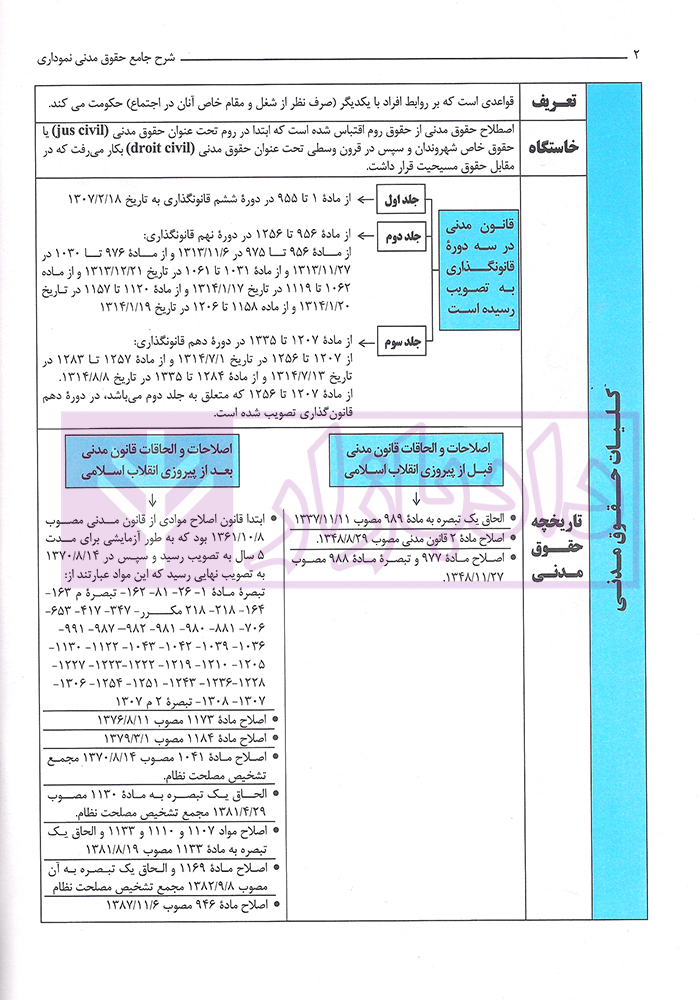 ۲
شرح جامع حقوق مدنی نموداری
کلیات حقوق مدنی
تعریف
قواعدی است که بر روابط افراد با یکدیگر (صرف نظر از شغل و مقام خاص آنان در اجتماع) حکومت می کند.
خاستگاه
اصطلاح حقوق مدنی از حقوق روم اقتباس شده است که ابتدا در روم تحت عنوان حقوق مدنی (jus civil) یا
حقوق خاص شهروندان و سپس در قرون وسطی تحت عنوان حقوق مدنی (droit civil) بکار می‌رفت که در
مقابل حقوق مسیحیت قرار داشت.
تاریخچه
حقوق
مدنی
قانون مدنی
در سه دورۀ
قانونگذاری
به تصویب
رسیده است
جلد اول
از مادۀ ۱ تا ۹۵۵ در دورۀ ششم قانونگذاری به تاریخ ۱۳۰۷/۲/۱۸
جلد دوم
از مادۀ ۹۵۶ تا ۱۲۵۶ در دورۀ نهم قانونگذاری:
از مادۀ ۹۵۶ تا ۹۷۵ در ۱۳۱۳/۱۱/۶ و از مادۀ ۹۷۶ تا ۱۰۳۰ در
۱۳۱۳/۱۱/۲۷ و از مادۀ ۱۰۳۱ تا ۱۰۶۱ در تاریخ ۱۳۱۳/۱۲/۲۱ و از ماده
۱۰۶۲ تا ۱۱۱۹ در تاریخ ۱۳۱۴/۱/۱۷ و از مادۀ ۱۱۲۰ تا ۱۱۵۷ در تاریخ
۱۳۱۴/۱/۲۰ و از ماده ۱۱۵۸ تا ۱۲۰۶ در تاریخ ۱۳۱۴/۱/۱۹
جلد سوم
از مادۀ ۱۲۰۷ تا ۱۳۳۵ در دورۀ دهم قانونگذاری:
از ۱۲۰۷ تا ۱۲۵۶ در تاریخ ۱۳۱۴/۷/۱ و از مادۀ ۱۲۵۷ تا ۱۲۸۳ در
تاریخ ۱۳۱۴/۷/۱۳ و از مادۀ ۱۲۸۴ تا ۱۳۳۵ در تاریخ ۱۳۱۴/۸/۸.
از مادۀ ۱۲۰۷ تا ۱۲۵۶ که متعلق به جلد دوم می‌باشد، در دورۀ دهم
قانون‌گذاری تصویب شده است.
اصلاحات و الحاقات قانون مدنی
قبل از پیروزی انقلاب اسلامی
• الحاق یک تبصره به مادۀ ۹۸۹ مصوب ۱۳۳۷/۱۱/۱۱
• اصلاح مادۀ ۲ قانون مدنی مصوب ۱۳۴۸/۸/۲۹.
• اصلاح مادۀ ۹۷۷ و تبصرۀ مادۀ ۹۸۸ مصوب
۱۳۴۸/۱۱/۲۷.
اصلاحات و الحاقات قانون مدنی
بعد از پیروزی انقلاب اسلامی
• ابتدا قانون اصلاح موادی از قانون مدنی مصوب
۱۳۶۱/۱۰/۸ بود که به طور آزمایشی برای مدت
۵ سال به تصویب رسید و سپس در ۱۳۷۰/۸/۱۴
به تصویب نهایی رسید که این مواد عبارتند از:
تبصرۀ مادۀ ۱- ۲۶- ۸۱- ۱۶۲- تبصرۀ م ۱۶۳-
۱۶۴- ۲۱۸- ۲۱۸ مکرر- ۳۴۷- ۴۱۷- ۶۵۳-
۷۰۶- ۸۸۱- ۹۸۰- ۹۸۱- ۹۸۲- ۹۸۷- ۹۹۱-
۱۰۳۶- ۱۰۳۹- ۱۰۴۲- ۱۰۴۳- ۱۱۲۲- ۱۱۳۰-
۱۲۰۵- ۱۲۱۰- ۱۲۱۹- ۱۲۲۲- ۱۲۲۳- ۱۲۲۷-
۱۲۲۸- ۱۲۳۶- ۱۲۴۳- ۱۲۵۱- ۱۲۵۴- ۱۳۰۶-
۱۳۰۷- ۱۳۰۸- تبصرۀ ۲ م ۱۳۰۷
• اصلاح مادۀ ۱۱۷۳ مصوب ۱۳۷۶/۸/۱۱
• اصلاح مادۀ ۱۱۸۴ مصوب ۱۳۷۹/۳/۱
• اصلاح مادۀ ۱۰۴۱ مصوب ۱۳۷۰/۸/۱۴ مجمع
تشخیص مصلحت نظام.
• الحاق یک تبصره به مادۀ ۱۱۳۰ مصوب
۱۳۸۱/۴/۲۹ مجمع تشخیص مصلحت نظام.
• اصلاح مواد ۱۱۰۷ و ۱۱۱۰ و ۱۱۳۳ و الحاق یک
تبصره به مادۀ ۱۱۳۳ مصوب ۱۳۸۱/۸/۱۹
• اصلاح مادۀ ۱۱۶۹ و الحاق یک تبصره به آن
مصوب ۱۳۸۲/۹/۸ مجمع تشخیص مصلحت نظام
• اصلاح مادۀ ۹۴۶ مصوب ۱۳۸۷/۱۱/۶